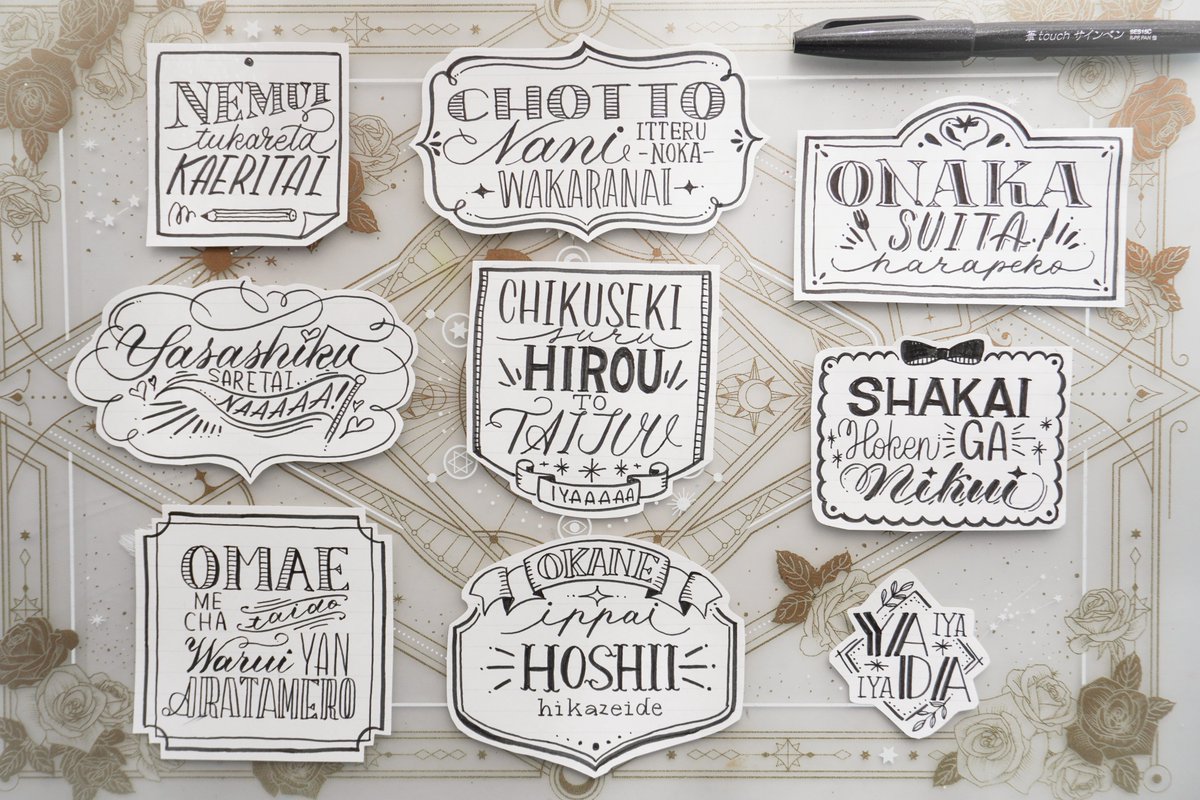 NEMUI
tukareta
KAERITAI
CHOTTO
Nani ITTERU
-NOKA-
WAKARANAI
筆touch サインペン SES15C
ONAKA
SUITA
harapeko
Yasashiku
SARETAI...
NAAAAA!
CHIKUSEKI
suru
HIROU
TO
TAIJUU
IYAAAAA
SHAKAI
Hoken GA
Nikui
OMAE
ME
CHA taido
Warui YAN
ARATAMERO
OKANE
ippai
HOSHII
hikazeide
YA IYA
IYA DA